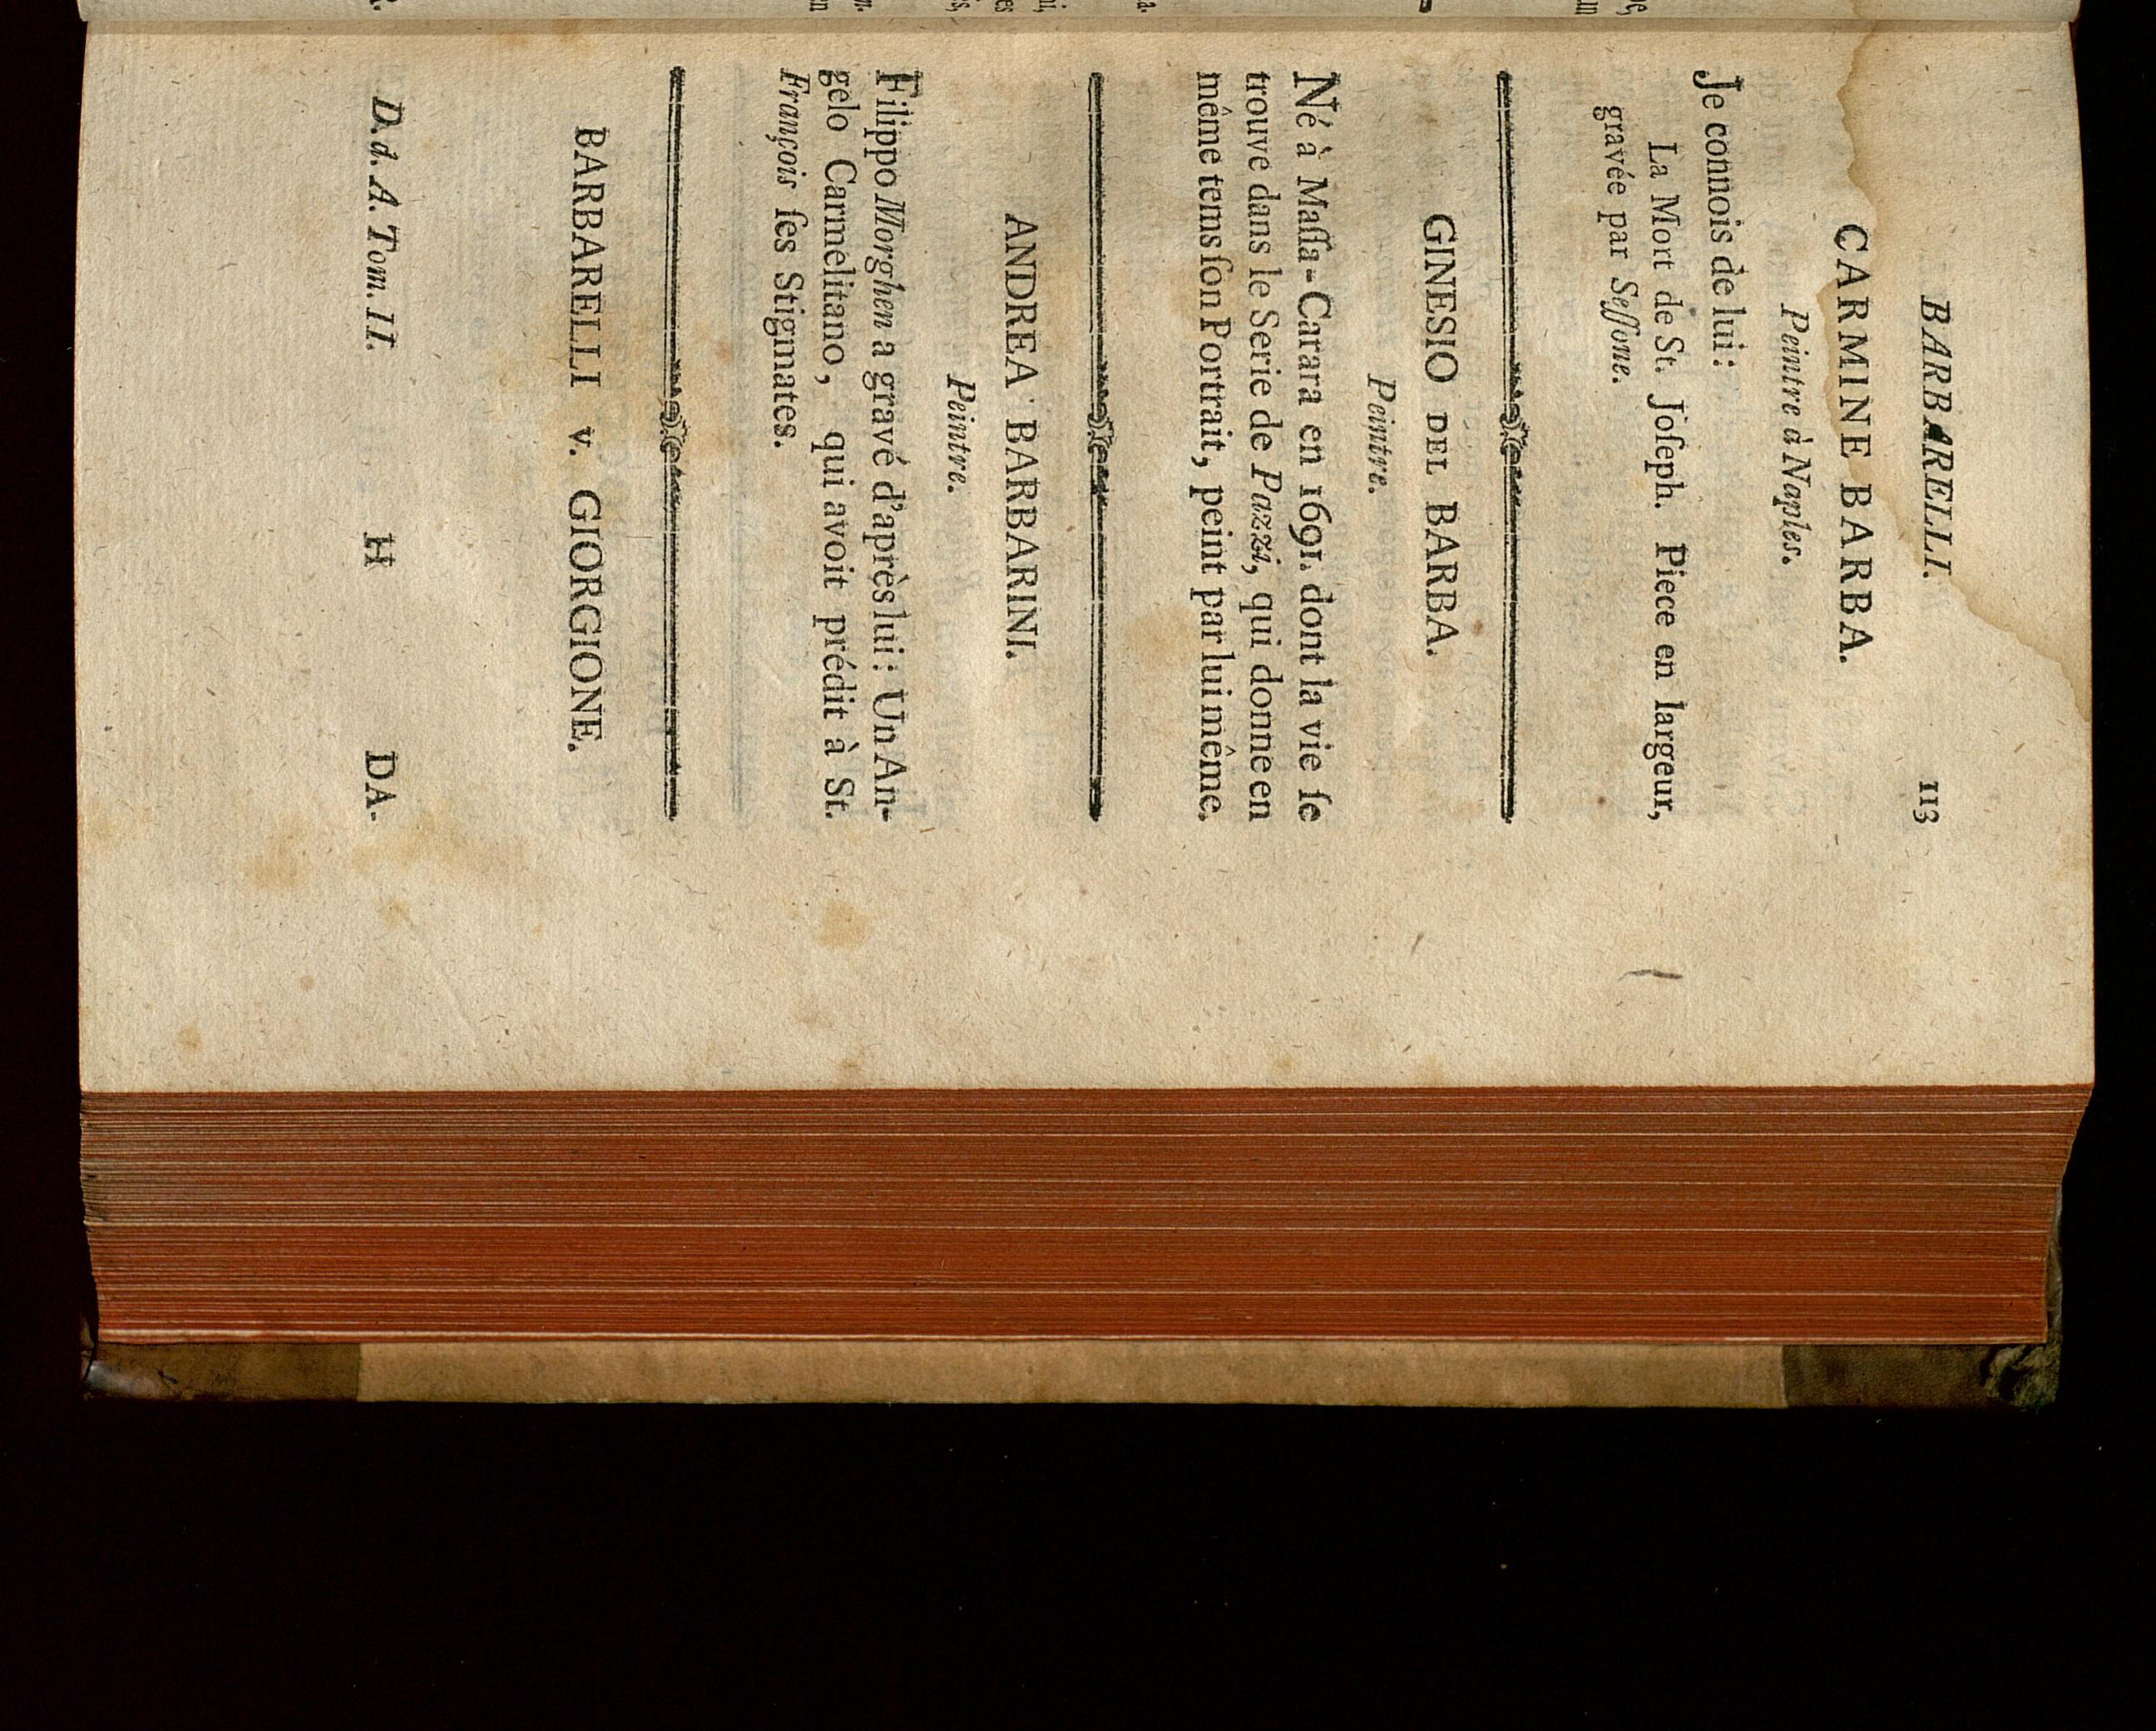 BARBARELLI. 113
CARMINE BARBA.
Peintre à Naples.
Je connois de lui:
La Mort de St. Joſeph. Piece en largeur,
gravée par Seſſone.
GINESIO DEL BARBA.
Peintre.
Né à Maſſa-Carara en 1691. dont la vie ſe
trouve dans le Serie de Pazzi, qui donne en
même tems ſon Portrait, peint par lui même.
ANDREA BARBARINI.
Peintre.
Filippo Morghen a gravé d'après lui: Un An-
gelo Carmelitano, qui avoit prédit à St.
François ſes Stigmates.
BARBARELLI v. GIORGIONE.
D. d. A. Tom. II. H DA-